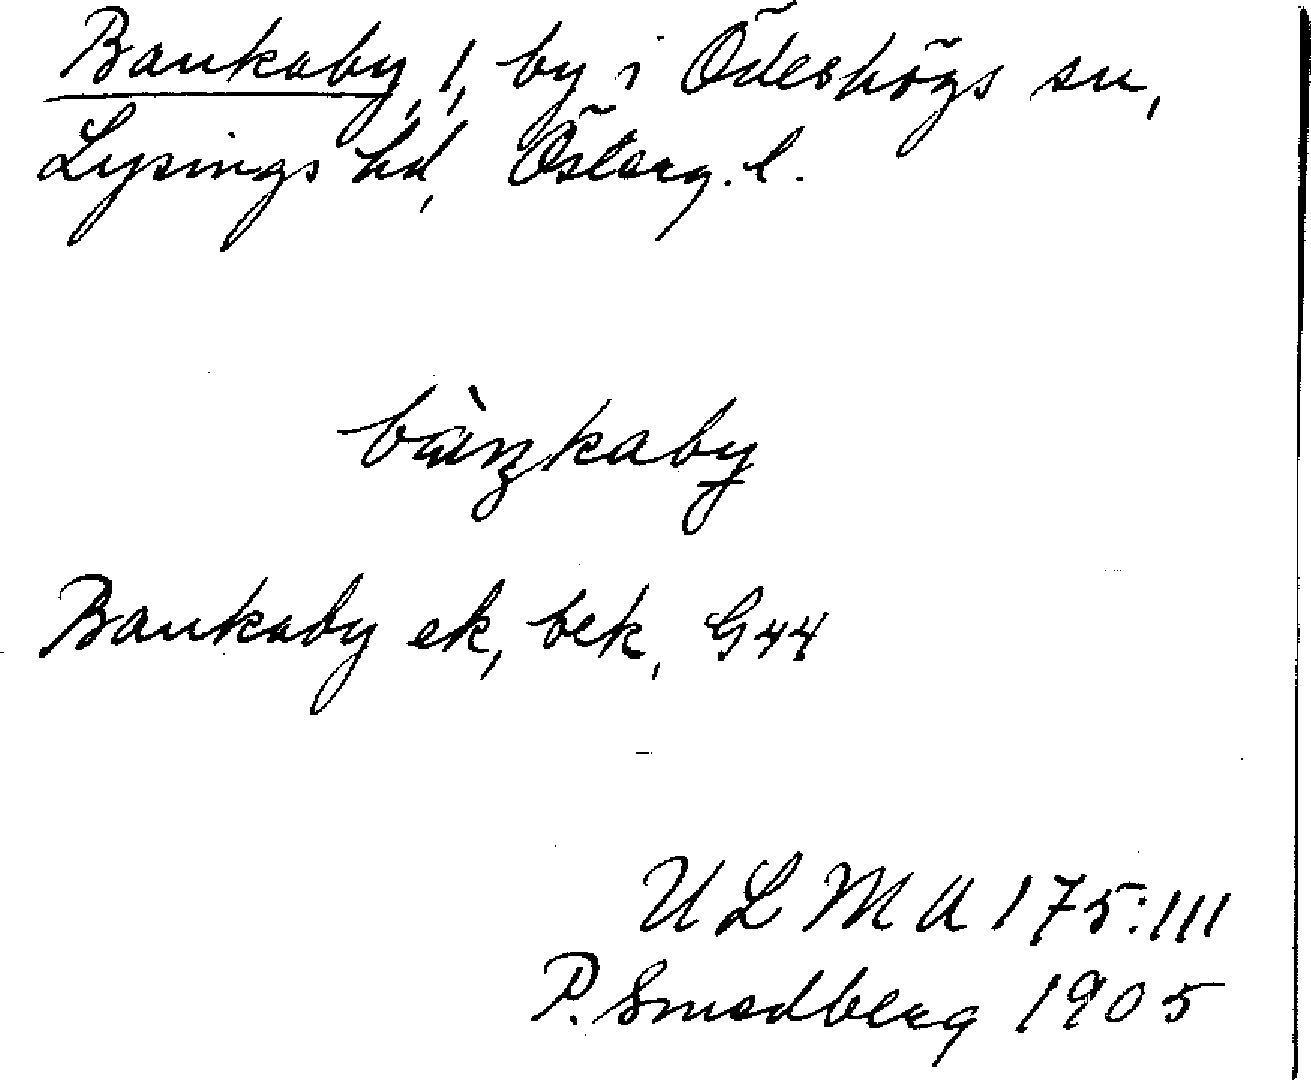 Bankaby, 1, by i Ödeshögs sn,
Lysings hd, Österg. l.
bàŋkaby
Bankaby ek, bek, G44
ULMA 175:111
P. Smedberg 1905